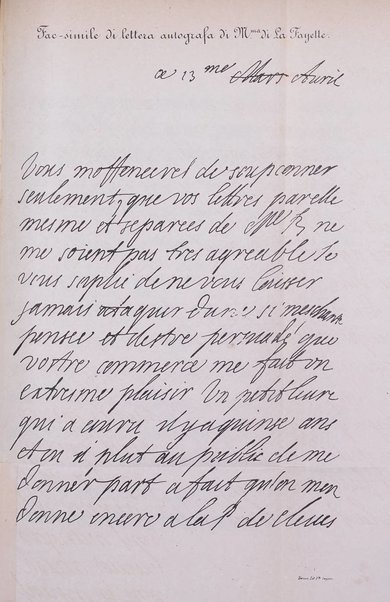 Fac-simile di lettera autografa di M.ma di La Fayette.
ce 13 me Mars Avril
Vous moffencevel de soupconner
seulement que vos lettres par elle
mesme et separees de
ne
me soient pas tres agreable Je
vous suplie de ne vous laisser
jamais ataquer dune si meschante
pensee et destre persuade que
vostre commerce me fait un
extresme plaisir Un petit livre
qui a couru il y a quinse ans
et ou il plut au public de me
donner part a fait qu'on men
donne encore a la P. de cleves